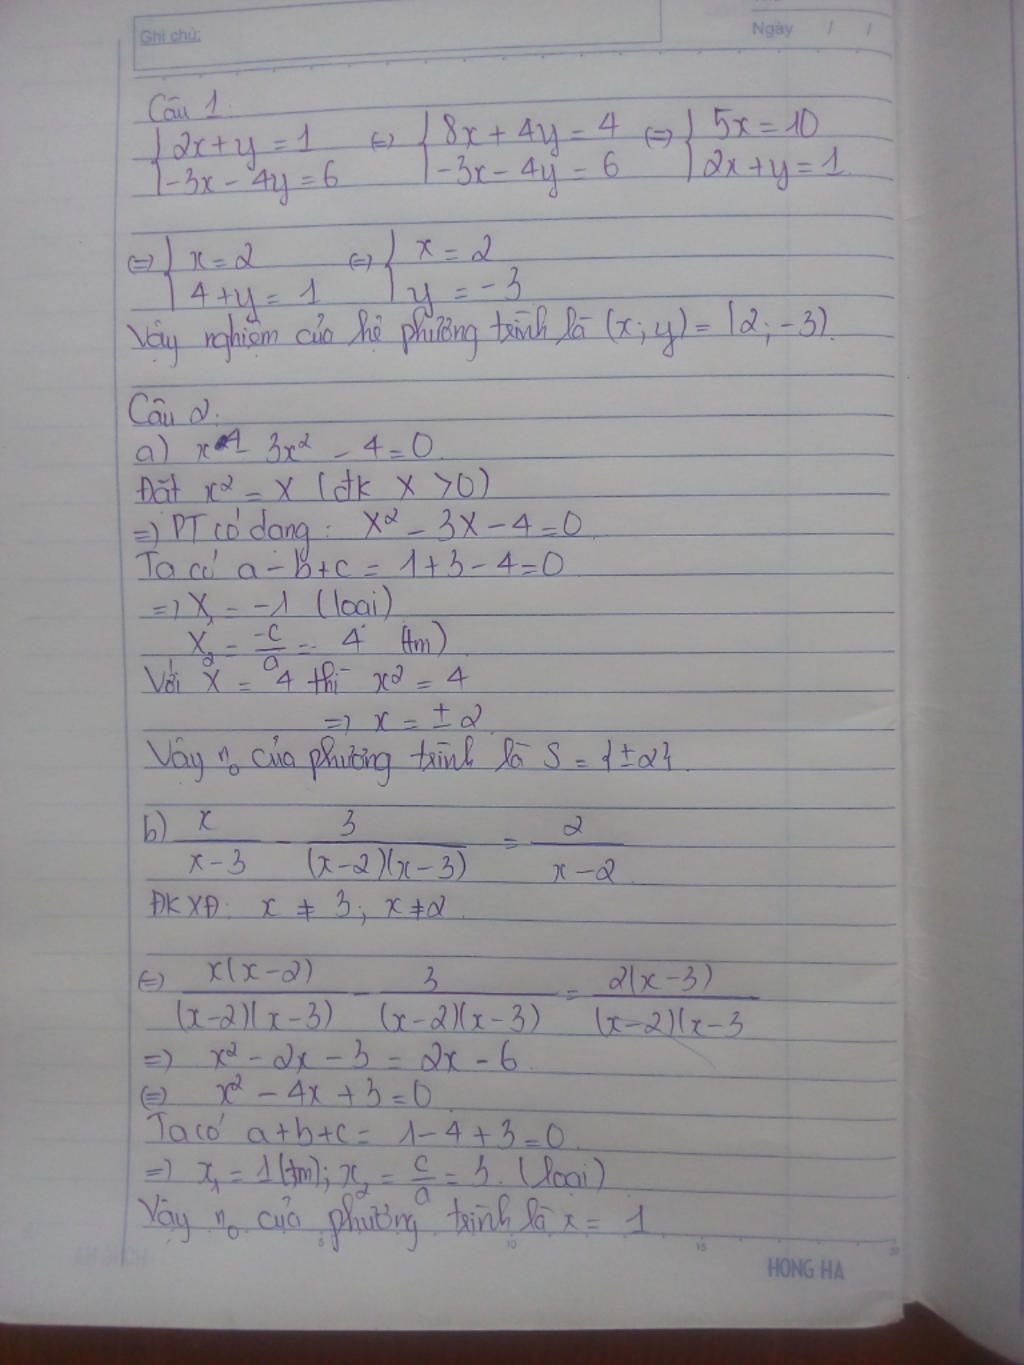 Ghi chú:
Ngày / /
Câu 1.
{ 2x + y = 1 <=> { 8x + 4y = 4 <=> { 5x = 10
{ -3x - 4y = 6 { -3x - 4y = 6 { 2x + y = 1.
<=> { x = 2 <=> { x = 2
{ 4 + y = 1 { y = -3
Vậy nghiệm của hệ phương trình là (x; y) = (2; -3).
Câu 2:
a) x⁴ - 3x² - 4 = 0.
Đặt x² = X (đk X > 0)
=> PT có dạng: X² - 3X - 4 = 0.
Ta có a - b + c = 1 + 3 - 4 = 0
=> X₁ = -1 (loại)
X₂ = -c/a = 4 (tm)
Với X = 4 thì x² = 4
=> x = ± 2.
Vậy n₀ của phương trình là S = {±2}.
b) x/(x-3) - 3/((x-2)(x-3)) = 2/(x-2).
ĐKXĐ: x ≠ 3; x ≠ 2.
<=> x(x-2)/((x-2)(x-3)) - 3/((x-2)(x-3)) = 2(x-3)/((x-2)(x-3
=> x² - 2x - 3 = 2x - 6.
<=> x² - 4x + 3 = 0.
Ta có a + b + c = 1 - 4 + 3 = 0.
=> x₁ = 1 (tm); x₂ = c/a = 3. (loại)
Vậy n₀ của phương trình là x = 1
5 10 15 20
HONG HA